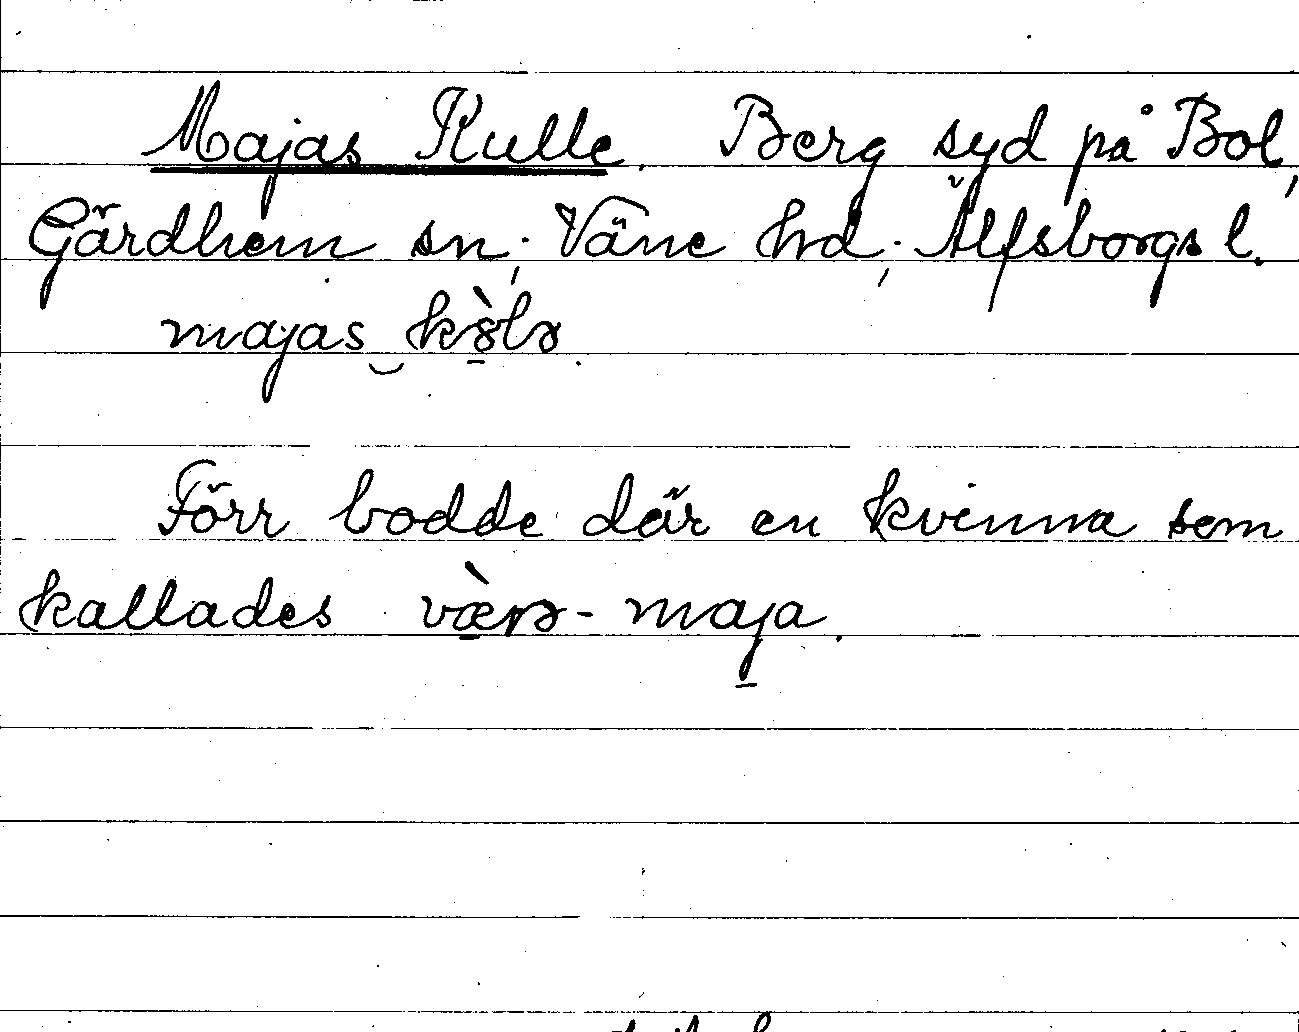 Majas Kulle. Berg syd på Bol,
Gärdhem sn; Väne hd; Älfsborgs l.
majas‿kòlə.
Förr bodde där en kvinna som
kallades vær̀ə-maja.